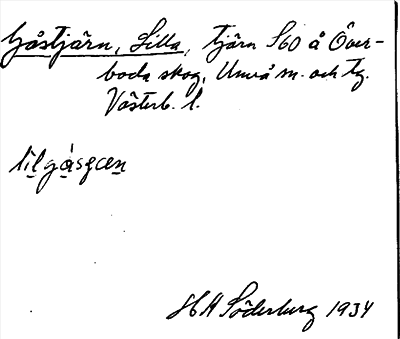 Gåstjärn, Lilla, tjärn S60 å Över-
boda skog, Umeå sn. och tg.
Västerb. l.
lilgásɛcen
H H Söderberg 1934